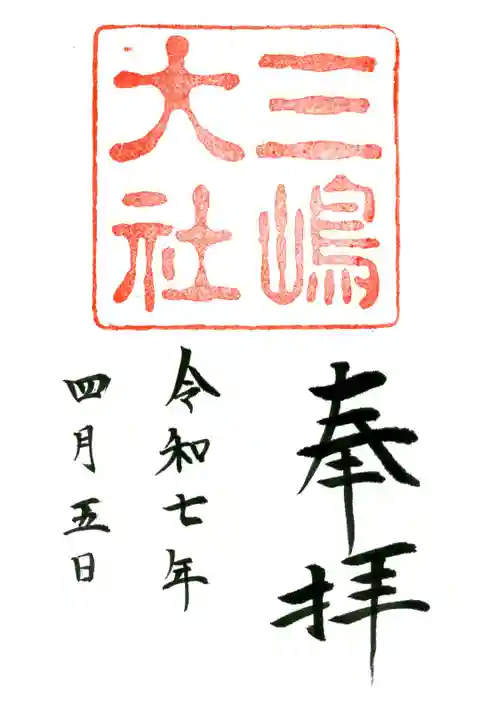 三嶋
大社
奉拝
令和七年
四月五日